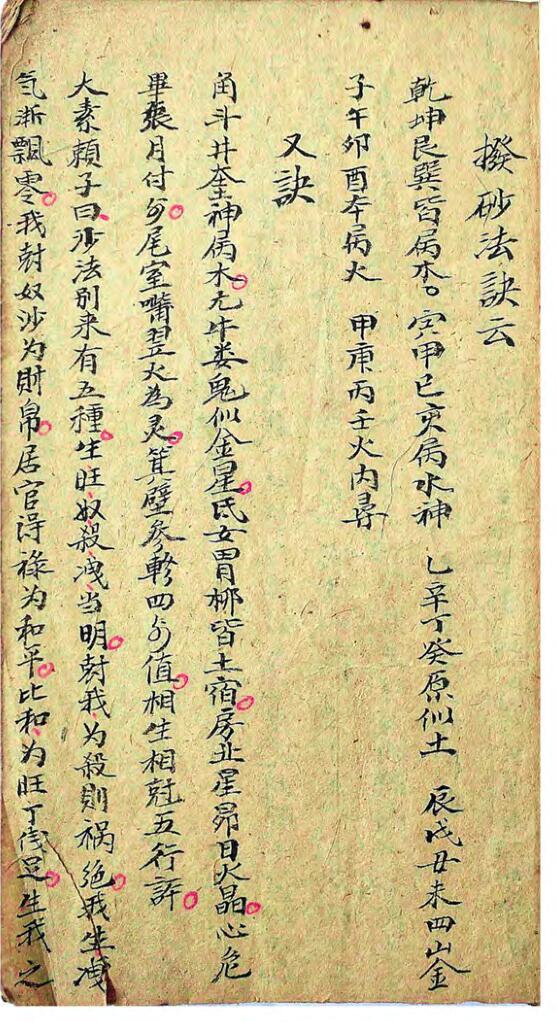 撥砂法訣云
乾坤艮巽皆属木。寅甲巳亥属水神 乙辛丁癸原似土 辰戌丑未四山金
子午卯酉本属火 甲庚丙壬火内尋
又訣
角斗井奎神属木。亢牛娄鬼似金星。氐女胃柳皆土宿。房星昴日火晶。心危
畢張月付。尾室嘴翌火為灵。箕壁参軫四值。相生相尅五行訴。
大素頼子曰、沙法别来有五種。生旺、奴殺、洩當明。尅我、為殺則祸绝。我生洩
氣漸飄零。我尅奴沙為財帛。居官得禄為和平。比和、為旺丁足。生我之